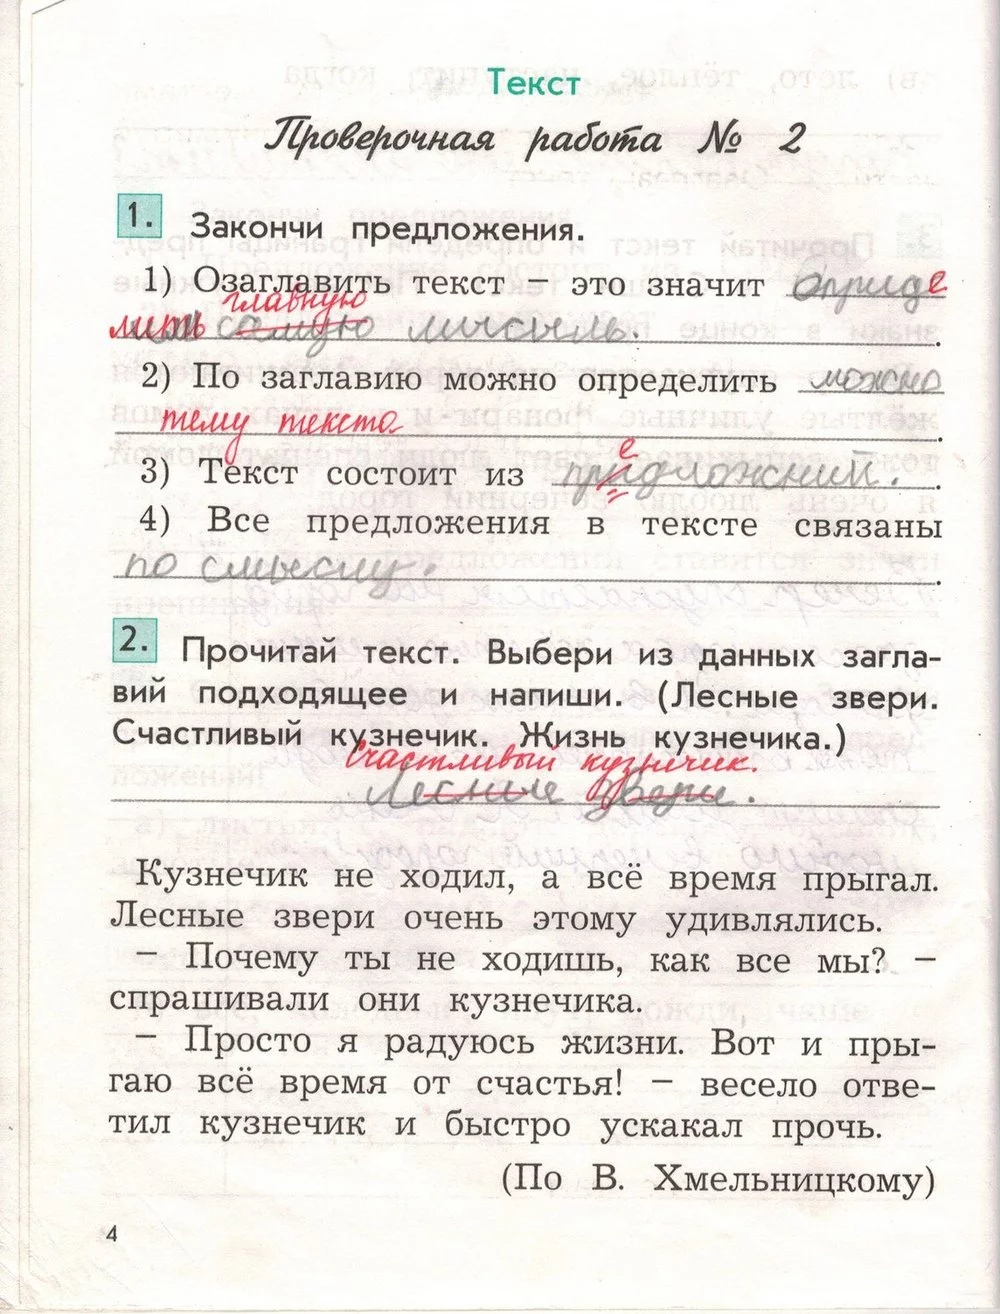 Текст
Проверочная работа № 2
1. Закончи предложения.
1) Озаглавить текст – это значит оприде
главную
лить самую мысыль.
2) По заглавию можно определить можно
тему текста
3) Текст состоит из придложений.
е
4) Все предложения в тексте связаны
по смыслу.
2. Прочитай текст. Выбери из данных загла-
вий подходящее и напиши. (Лесные звери.
Счастливый кузнечик. Жизнь кузнечика.)
Счастливый кузнечик.
Лесные звери.
Кузнечик не ходил, а всё время прыгал.
Лесные звери очень этому удивлялись.
– Почему ты не ходишь, как все мы? –
спрашивали они кузнечика.
– Просто я радуюсь жизни. Вот и пры-
гаю всё время от счастья! – весело отве-
тил кузнечик и быстро ускакал прочь.
(По В. Хмельницкому)
4